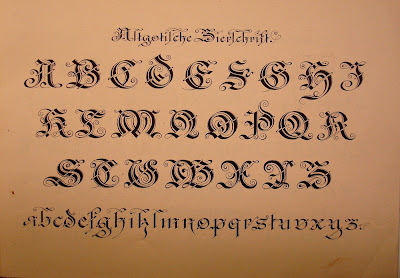 Altgotische Zierschrift.
A B C D E F G H I
K L M N O P Q R
S T U W X Y Z
abcdefghiklmnopqrstuvxyz.